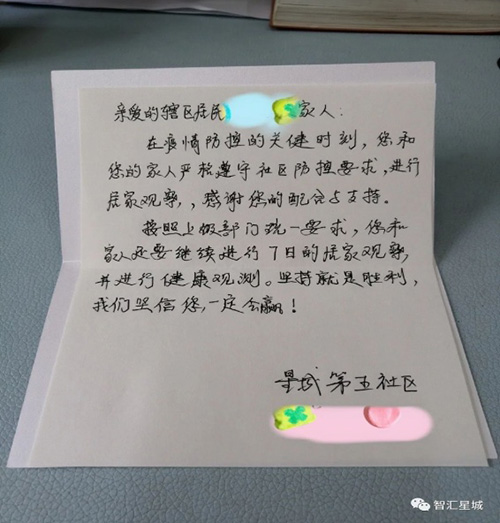 亲爱的辖区居民 家人：
在疫情防控的关键时刻，您和
您的家人严格遵守社区防控要求，进行
居家观察，，感谢您的配合与支持。
按照上级部门统一要求，您和
家人还要继续进行7日的居家观察，
并进行健康观测。坚持就是胜利，
我们坚信您，一定会赢！
星城第五社区
智汇星城